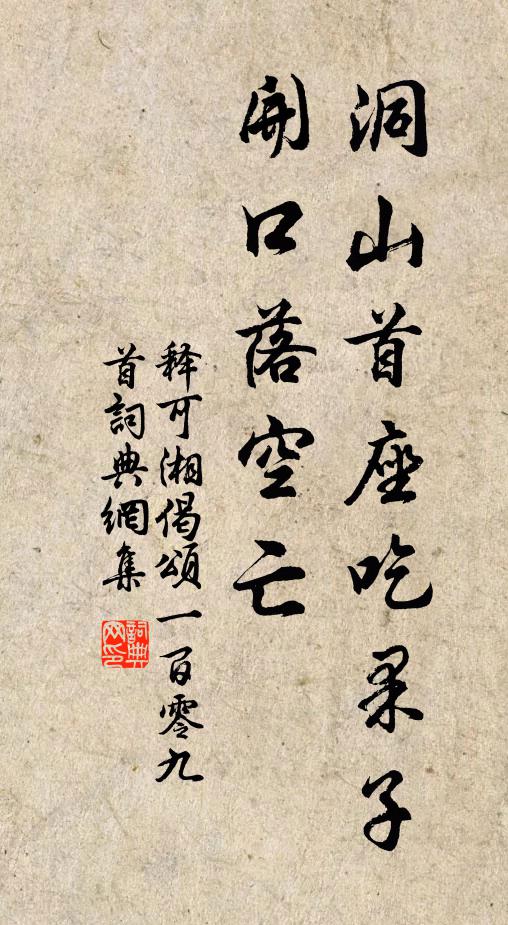 洞山首座吃果子
開口落空亡
釋可湘偈頌一百零九
首詞典網集
詞典网印